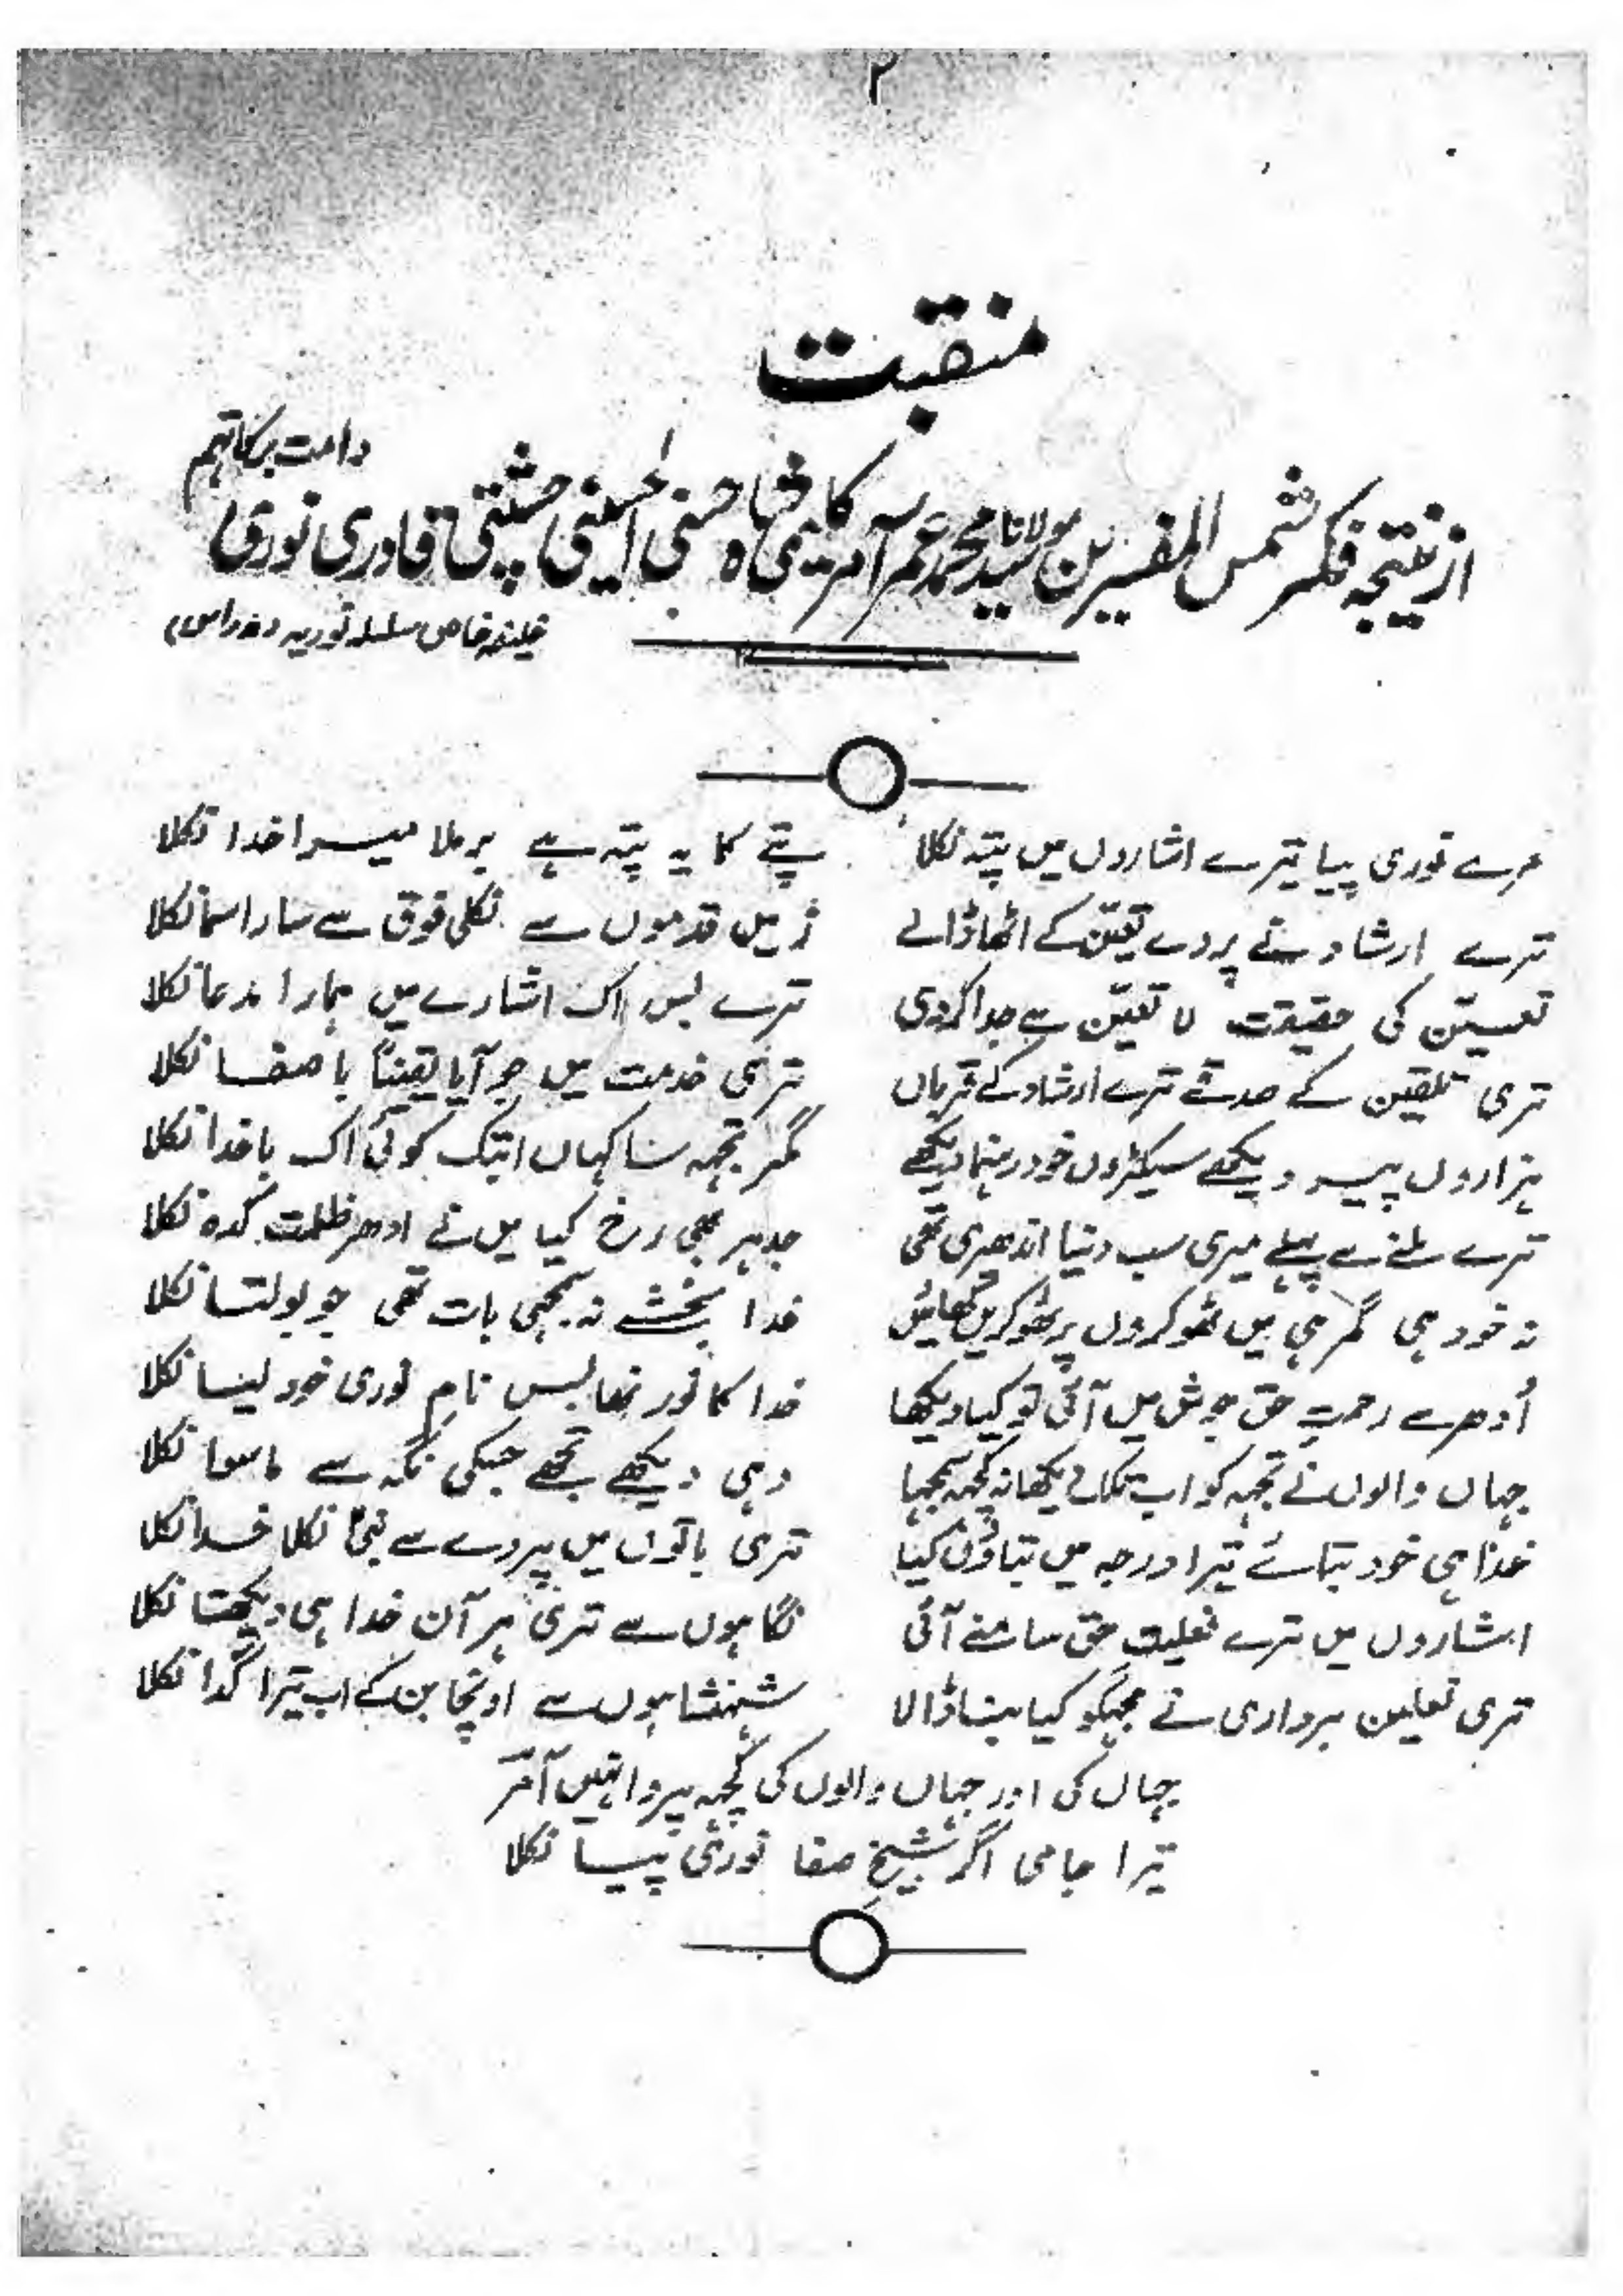 ۲
منقبت
از نتیجہ فکر شمس المفسرین مولانا سید محمد عمر آمر کلیمی شاہ حسنی الحسینی چشتی قادری نوری دامت برکاتہم
خلیفہ خاص سلسلہ نوریہ (مدراس)
مرے نوری پیا تیرے اشاروں میں پتہ نکلا پتے کا یہ پتہ ہے برملا میرا خدا نکلا
ترے ارشاد نے پردے تعیّن کے اٹھا ڈالے زمیں قدموں سے نکلی فوق سے سارا سما نکلا
تعیّن کی حقیقت لا تعیّن سے جدا کردی ترے بس اک اشارے میں ہمارا مدعا نکلا
تری تلقین کے صدقے ترے ارشاد کے قرباں تری خدمت میں جو آیا یقیناً با صفا نکلا
ہزاروں پیر دیکھے سیکڑوں خود رہنما دیکھے مگر تجہہ سا کہاں ابتک کوئی اک با خدا نکلا
ترے ملنے سے پہلے میری سب دنیا اندھیری تھی جدہر بھی رخ کیا میں نے ادھر ظلمت کدہ نکلا
نہ خود ہی گمرہی میں ٹھوکروں پر ٹھوکریں کھائیں خدا بخشے نہ سمجھی بات تھی جو بولتا نکلا
اُدھر سے رحمتِ حق جوش میں آئی تو کیا دیکھا خدا کا نور تھا بس نام نوری خود لیسا نکلا
جہاں والوں نے تجہہ کو اب تک نے دیکھا نہ کچہہ سمجہا وہی دیکھے تجھے جسکی نگہ سے ماسوا نکلا
خدا ہی خود بتائے تیرا درجہ میں بتاؤں کیا تری باتوں میں پردے سے نبیؐ نکلا خدا نکلا
اشاروں میں ترے فعلیتِ حق سامنے آئی نگاہوں سے تری ہر آن خدا ہی دیکھتا نکلا
تری نعلین برداری نے مجہکو کیا بنا ڈالا شہنشاہوں سے اونچا بن کے اب تیرا گدا نکلا
جہاں کی اور جہاں والوں کی کچہہ پروا نہیں آمرؔ
تیرا حامی اگر شیخِ صفا نوری پیا نکلا